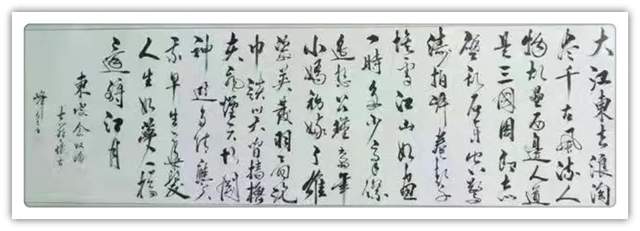 大江東去浪淘
尽千古風流人
物故壘西邊人道
是三國周郎赤
壁亂石穿空驚
濤拍岸卷起千
堆雪江山如畫
一時多少豪傑
遙想公瑾當年
小喬初嫁了雄
姿英發羽扇綸
巾談笑間檣櫓
灰飛煙滅故國
神遊多情應笑
我早生華髮
人生如夢一樽
還酹江月
東坡念奴嬌